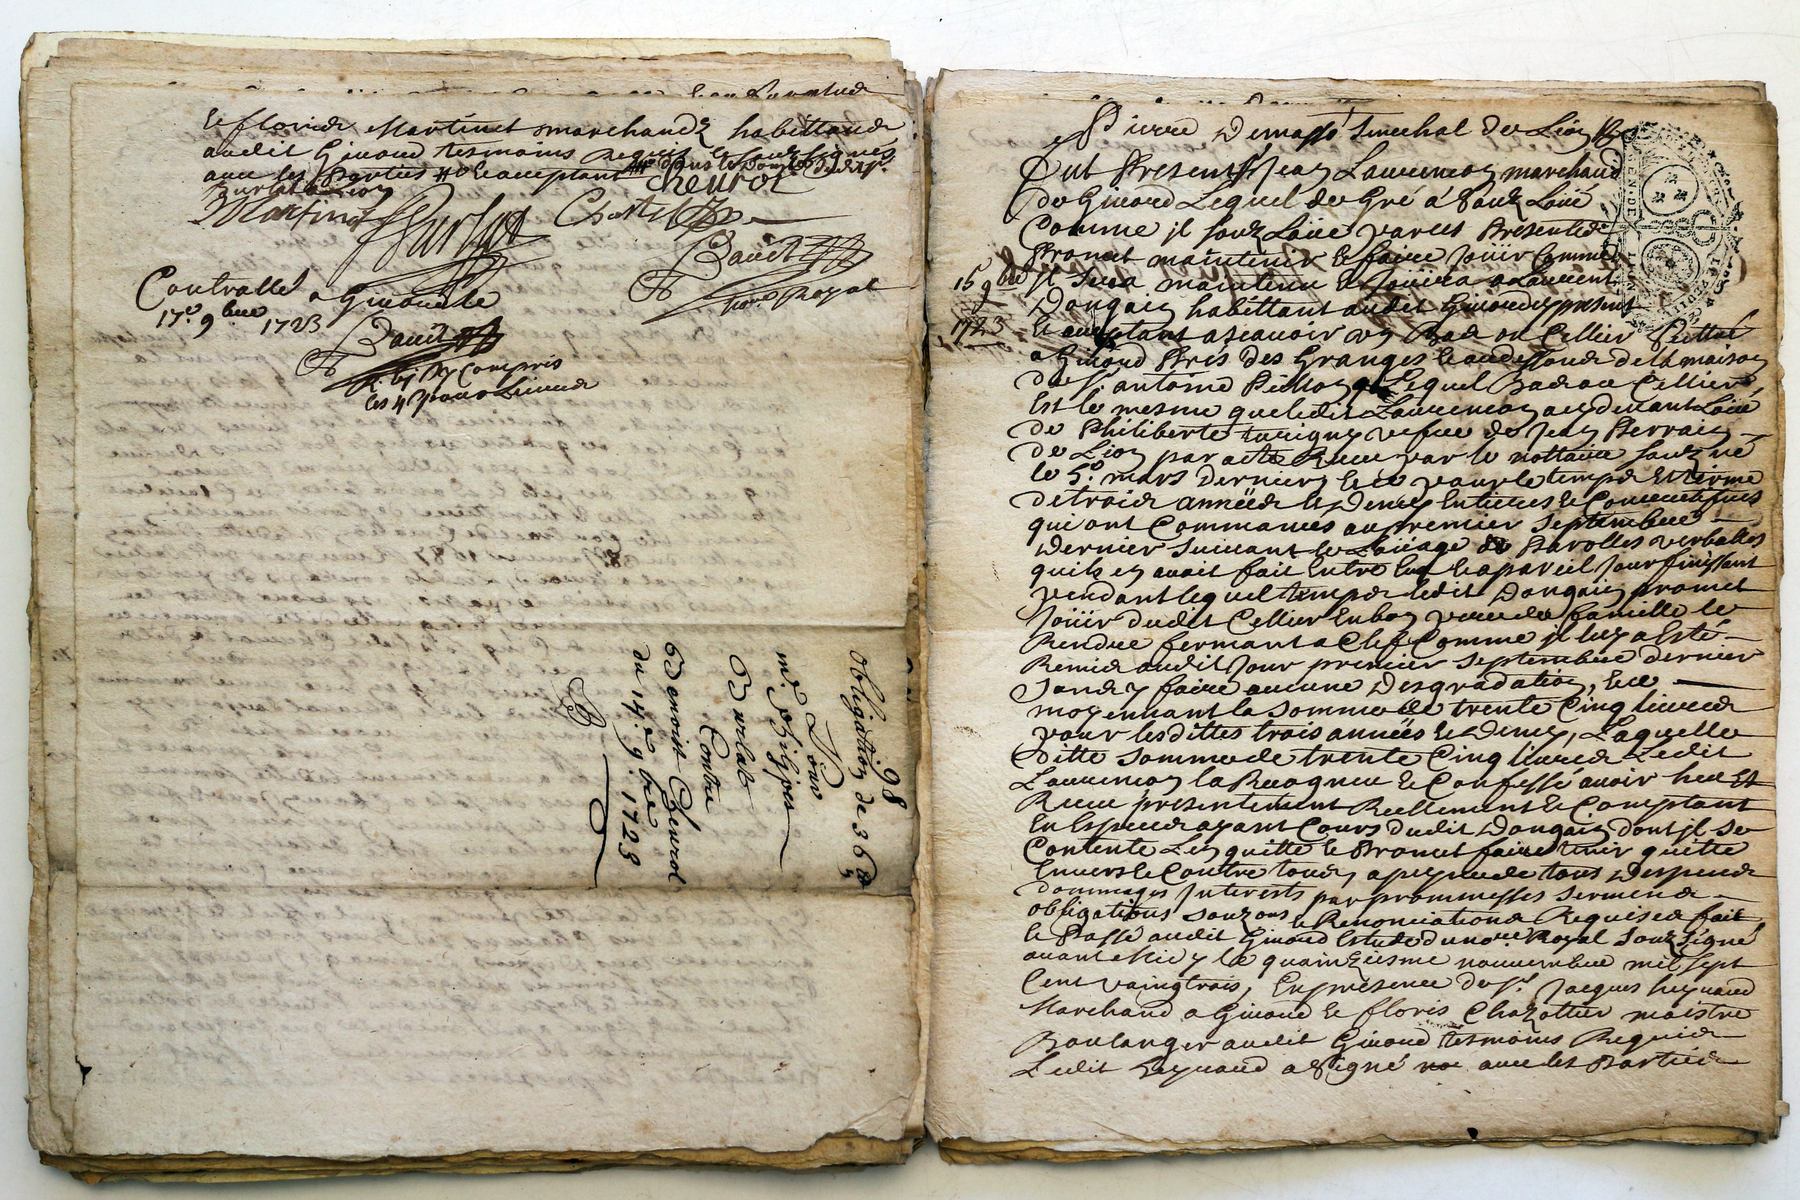 et floris Martinet marchands habittans
audit Givord tesmoins Requis et soubsignes
avec les Parties
Martinet Burlat
Bault
no.re Royal
Controllé a Givord le
17.e 9bre 1723
Bault
compris
les 4 s pour Livre
98
Obligation de 36
Pour
Philippes
Burlat
Contre
Benoist Chevrol
du 14.e 9.bre 1723
Pierre Demassé Senechal de Lion
Fut Present Jean Laurencon marchand
de Givord Lequel de Gré a soubz Loüé
Comme jl soubz Loüe par ces Presentes
Promet maintenir et faire Joüir Comme
15 9bre
1723
Jl sera maintenu et Joüira a Laurent
Dongain habittant audit Givord present
et acceptant ascavoir un Bas ou Cellier scittué
a Givord Pres des Granges et au dessoubs de la maison
de S.r antoine lequel Bas ou Cellier
Est le mesme que ledit Laurencon a cy devant Loüé
de Philiberte vefve de Jean Perrain
de Lion par acte Receu par le nottaire soubzné
le 5.e mars dernier et ce pour le temps et terme
de trois années et Demy Entieres et Consecutives
qui ont Commancés au premier septembre
dernier suivant le Loüage de Parolles verballes
quils en avoit fait Entre Eux et a pareil Jour finissant
pendant lequel temps ledit Dongain promet
Joüir dudit Cellier En bon pere de famille le
Rendre fermant a Clef Comme jl luy a Esté
Remis audit Jour premier septembre dernier
sans y faire aucune Desgradation, Et ce
moyennant la somme de trente Cinq livres
pour lesdittes trois années et Demy, Laquelle
ditte somme de trente Cinq livres Ledit
Laurencon la Recogneu et Confessé avoir heu Et
Receu presentement Reellement et Comptant
En Especes ayant Cours dudit Dongain dont jl se
Contente Len quitte et Promet faire tenir quitte
Envers et Contre tous, a peyne de tous Despens
dommages Interests par prommesses serments
obligations soubzons et Renonciations Requises fait
et Passé audit Givord Estude du no.re Royal soubzsigné
avant Midy le quainziesme novembre mil sept
Cent vaingtrois, En presence de S.r Jacques heynaud
Marchand a Givord et floris Chazottier maistre
Boulanger audit Givord tesmoins Requis
Ledit heynaud a signé avec les Parties